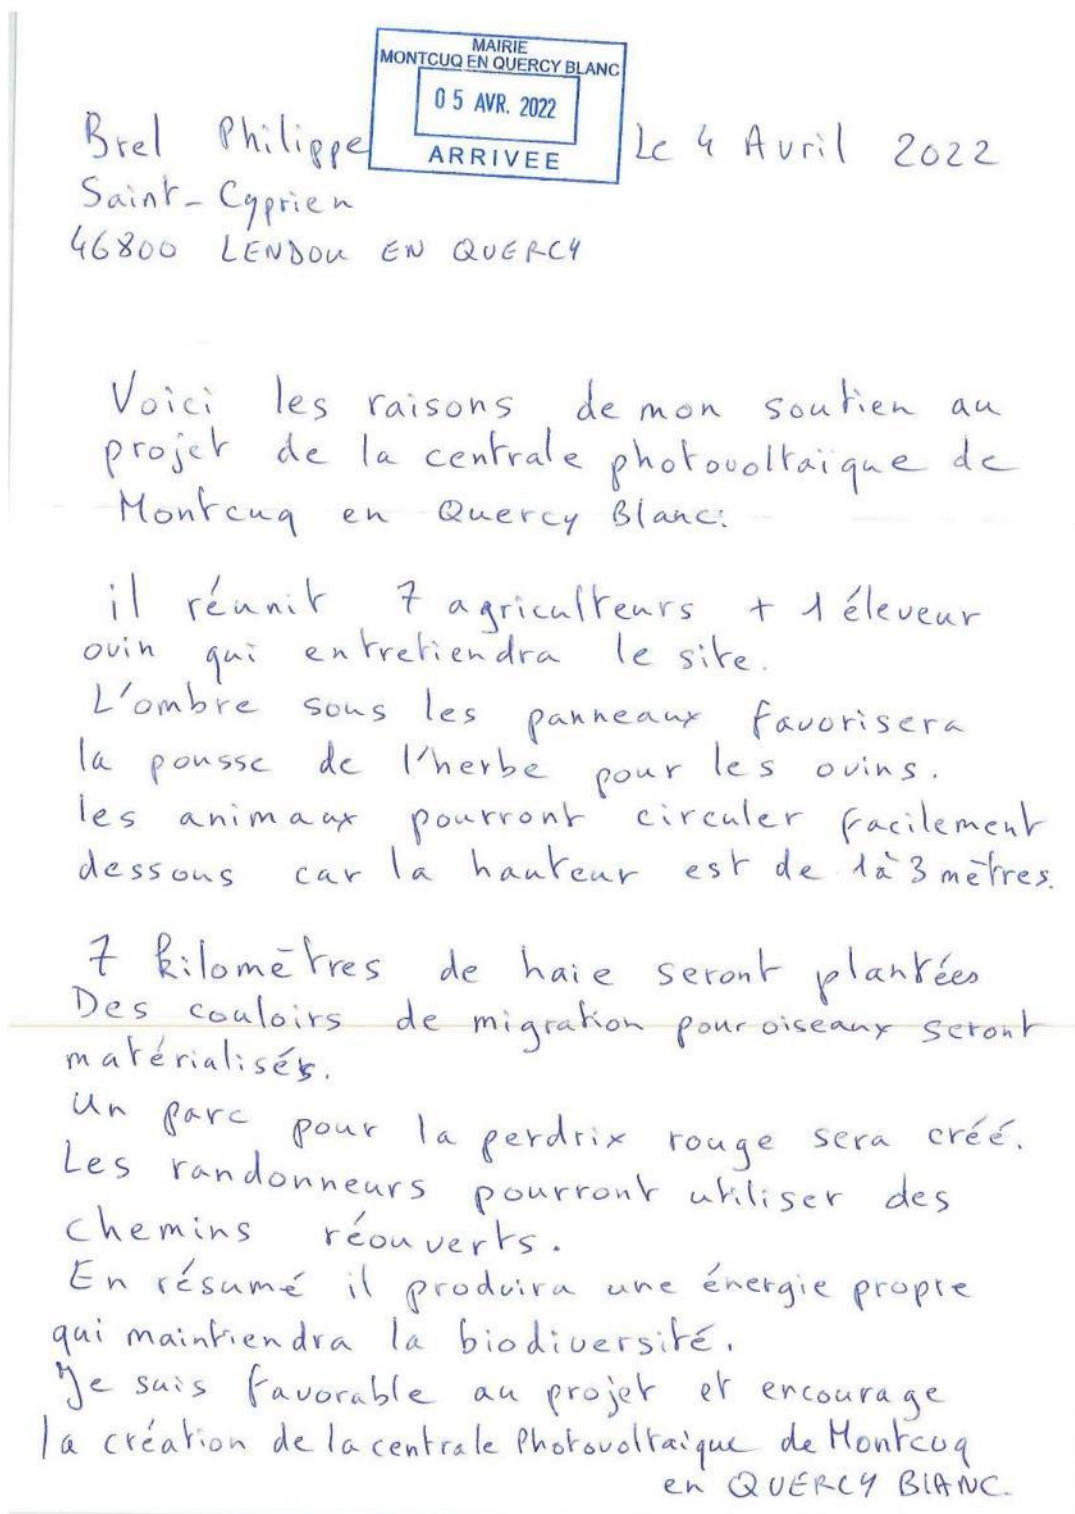 MAIRIE
MONTCUQ EN QUERCY BLANC
05 AVR. 2022
ARRIVEE
Brel Philippe
Le 4 Avril 2022
Saint-Cyprien
46800 LENDOU EN QUERCY
Voici les raisons de mon soutien au
projet de la centrale photovoltaïque de
Montcuq en Quercy Blanc:
il réunit 7 agriculteurs + 1 éleveur
ovin qui entretiendra le site.
L'ombre sous les panneaux favorisera
la pousse de l'herbe pour les ovins.
les animaux pourront circuler facilement
dessous car la hauteur est de 1à 3 mètres.
7 kilomètres de haie seront plantées
Des couloirs de migration pour oiseaux seront
matérialisés.
Un parc pour la perdrix rouge sera créé.
Les randonneurs pourront utiliser des
chemins réouverts.
En résumé il produira une énergie propre
qui maintiendra la biodiversité.
Je suis favorable au projet et encourage
la création de la centrale Photovoltaïque de Montcuq
en QUERCY BLANC.